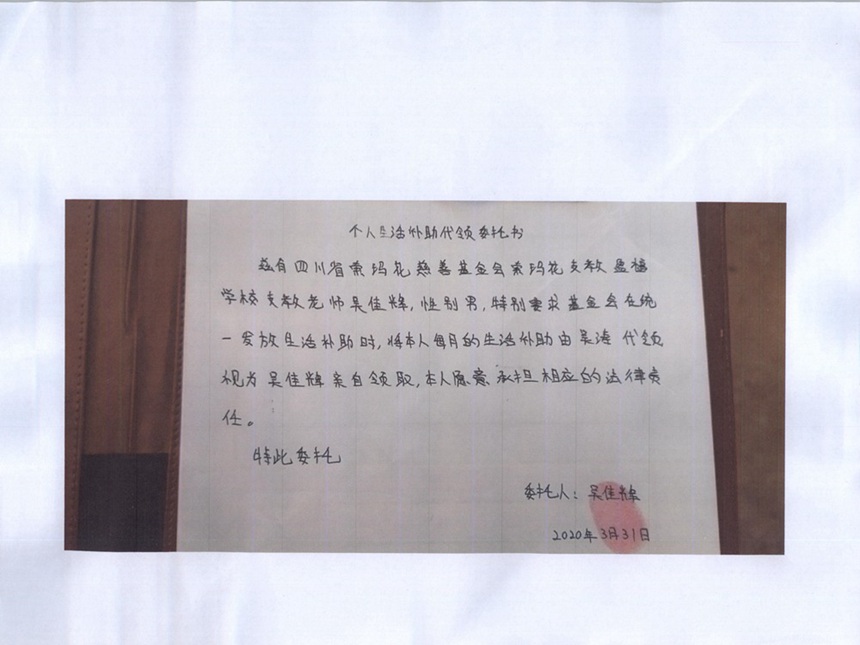 个人生活补助代领委托书
兹有四川省索玛花慈善基金会索玛花支教盈福
学校支教老师吴佳辉,性别男,特别要求基金会在统
一发放生活补助时,将本人每月的生活补助由吴涛代领
视为吴佳辉亲自领取,本人愿意承担相应的法律责
任。
特此委托
委托人:吴佳辉
2020年3月31日